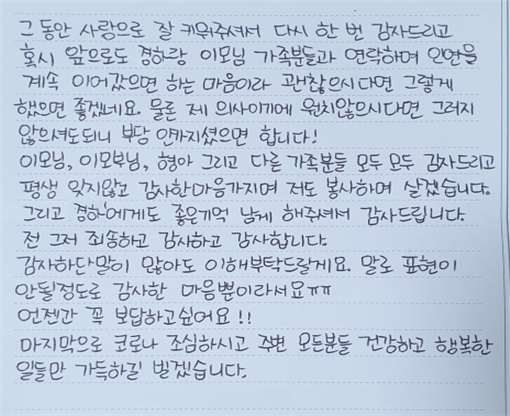 그동안 사랑으로 잘 키워주셔서 다시 한 번 감사드리고
혹시 앞으로도 경하랑 이모님 가족분들과 연락하며 인연을
계속 이어갔으면 하는 마음이라 괜찮으시다면 그렇게
했으면 좋겠네요. 물론 제 의사이기에 원치않으시다면 그러지
않으셔도되니 부담 안가지셨으면 합니다!
이모님, 이모부님, 형아 그리고 다른 가족분들 모두 모두 감사드리고
평생 잊지않고 감사한마음가지며 저도 봉사하며 살겠습니다.
그리고 경하에게도 좋은기억 남게 해주셔서 감사드립니다.
전 그저 죄송하고 감사하고 감사합니다.
감사하단말이 많아도 이해부탁드랄게요. 말로 표현이
안될정도로 감사한 마음뿐이라서요ㅠㅠ
언젠간 꼭 보답하고싶어요!!
마지막으로 코로나 조심하시고 주변 모든분들 건강하고 행복한
일들만 가득하길 빌겠습니다.